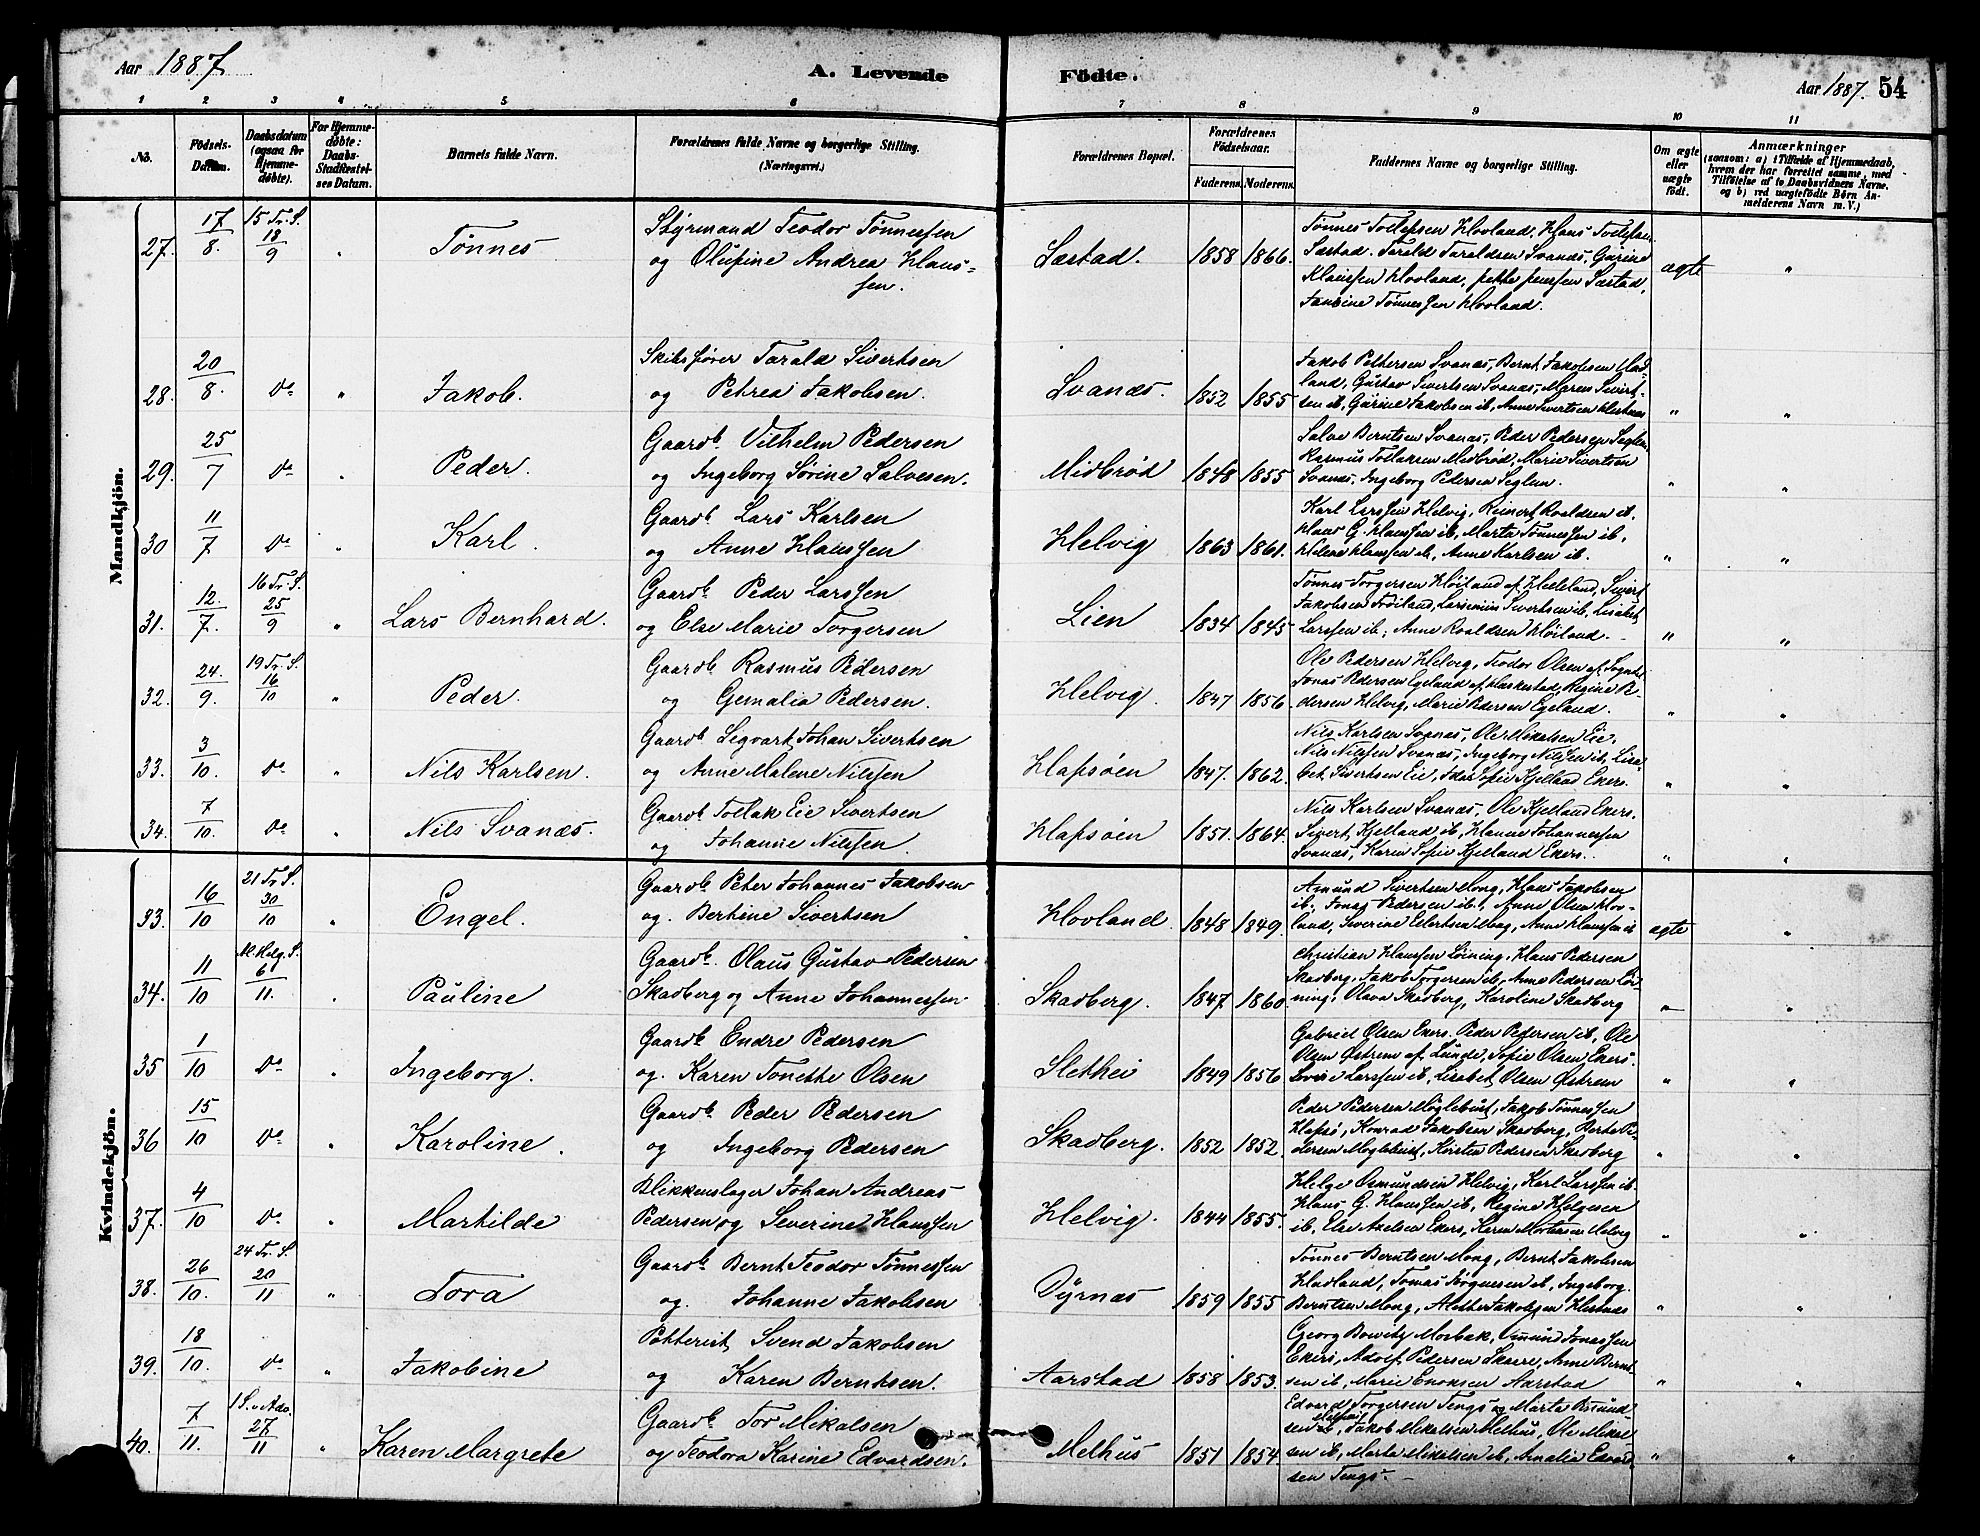 Aar 1887
A. Levende Födte.
Aar 1887. 54
1 2 3 4 5 6 7 8 9 10 11
No.
Födsels-Datum.
Daabsdatum (ogsaa for Hjemmedöbte).
For Hjemmedöbte: Daabs-Stadfæstelses Datum.
Barnets fulde Navn.
Forældrenes fulde Navne og borgerlige Stilling. (Næringsvei.)
Forældrenes Bopæl.
Forældrenes Födselsaar.
Faderens. Moderens.
Faddernes Navne og borgerlige Stilling.
Om ægte eller uægte födt.
Anmærkninger
(saasom: a) i Tilfælde af Hjemmedaab, hvem der har forrettet samme, med Tilföielse af to Daabsvidners Navne, og b) ved uægtefödte Börn Anmelderens Navn m. V.)
Mandkjön.
27. 17/8. 15 Tr. S. 18/9 " Tønnes
Styrmand Teodor Tønnessen
og Olufine Andrea Hanssen.
Sæstad. 1858 1866.
Tønnes Tollefsen Hovland, Hans Tollefsen
Sæstad. Tarald Taraldsen Svanæs, Gurine
Hanssen Hovland, Jenssen Sæstad,
Tønnessen Hovland.
ægte "
28. 20/8. Do " Jakob.
Skibsfører Tarald Sivertsen
og Petrea Jakobsen.
Svanæs. 1852 1855
Jakob Pettersen Svanæs, Bernt Jakobsen
land, Gustav Sivertsen Svanæs, Maren Sivert-
sen ib, Gurine Jakobsen ib, Anne Sivertsen
" "
29. 25/7 Do " Peder.
Gaardb. Vilhelm Pedersen
og Ingeborg Sørine Salvesen.
Midbrød 1848 1855
Salve Berntsen Svanæs, Peder Pedersen Seglem
Rasmus Tollaksen Midbrød, Marie Sivertsen
Svanæs, Ingeborg Pedersen Seglem.
" "
30 11/7 Do " Karl.
Gaardb. Lars Karlsen
og Anne Hanssen
Helvig 1863 1861.
Karl Larssen Helvig, Reinert Roaldsen ib.
Hans G. Hanssen ib, Marta Tønnessen ib,
Helene Hanssen ib, Anne Karlsen ib.
" "
31. 12./7. 16 Tr. S. 25/9 " Lars Bernhard.
Gaardb. Peder Larssen
og Else Marie Torgersen
Lien 1834 1845
Tønnes Torgersen Høiland af Heleland, Sivert
Jakobsen Frøiland, Sivertsen ib, Lisabet
Larssen ib, Anne Roaldsen Høiland.
" "
32. 24./9. 19 Tr. S. 16/10 " Peder.
Gaardb. Rasmus Pedersen
og Gemalia Pedersen.
Helvig. 1847 1856.
Ole Pedersen Helvig, Teodor Olsen af
Jonas Pedersen Egeland af Haskestad, Regine P-
dersen Helvig, Marie Pedersen Egeland.
" "
33. 3/10. Do " Nils Karlsen.
Gaardb. Segvart Johan Sivertsen
og Anne Malene Nilssen
Hafsøen 1847. 1862.
Nils Karlsen Sognæs, Ole Mikalsen Eie,
Nils Nilssen Svanæs, Ingeborg Nilssen ib, Lisa-
bet Sivertsen Eie, Sofie Kjelland Ekers.
" "
34. 7/10. Do " Nils Svanæs.
Gaardb. Tollak Eie Sivertsen
og Johanne Nilssen.
Hafsøen 1851. 1864.
Nils Karlsen Svanæs, Ole Kjelland Ekers.
Sivert Kjelland ib, Hanne Johannessen
Svanæs, Karen Sofie Kjelland Ekers.
" "
Kvindekjön.
33. 16/10 21 Tr. S. 30/10 " Engel.
Gaardb. Peter Johannes Jakobsen
og. Bertine Sivertsen
Hovland. 1848 1849.
Amund Sivertsen Mong, Hans Jakobsen
ib. Jonas Pedersen ib., Anne Olsen Hov-
land, Severine Eilertsen Mong, Anne Hanssen ib
ægte "
34. 11/10 Al. Helg. S. 6/11. " Pauline
Gaardb. Olaus Gustav Pedersen
Skadberg og Anne Johannessen
Skadberg. 1847 1860.
Christian Hanssen Løining, Hans Pedersen
Skadberg, Jakob Torgersen ib, Anne Pedersen Løi-
ning, Olava Skadberg, Karoline Skadberg
" "
35 1/10 Do " Ingeborg.
Gaardb. Endre Pedersen
og. Karen Tonette Olsen
Slethei 1849 1856
Gabriel Olsen Ekers. Peder Pedersen ib, Ole
Olsen Østrem af Lunde, Sofie Olsen Ekers.
Lovise Larssen ib, Lisabet Olsen Østrem
" "
36 15/10 Do " Karoline.
Gaardb. Peder Pedersen
og Ingeborg Pedersen
Skadberg. 1852 1852.
Peder Pedersen Møglebust, Jakob Tønnessen
Hafsø, Konrad Jakobsen Skadberg, Berte Pe-
dersen Møglebust, Kirsten Pedersen Skadberg
" "
37. 4/10 Do " Martilde
Blikkenslager Johan Andreas
Pedersen og Severine Hanssen
Helvig. 1844 1855.
Helge Osmundsen Helvig, Karl Larssen ib.
Hans G. Hanssen ib, Regine Helgesen
ib, Else Axelsen Ekers, Karen Mortensen Helvig
" "
38. 26/10. 24 Tr. S. 20/11 " Tora
Gaardb. Bernt Teodor Tønnessen
og. Johanne Jakobsen
Dyrnæs 1859 1855
Tønnes Berntsen Mong, Bernt Jakobsen
Hadland, Tomas Jørgensen ib, Ingeborg
Berntsen Mong, Alethe Jakobsen
" "
39. 18/10. Do " Jakobine
Potterist Svend Jakobsen
og Karen Berntsen.
Aarstad 1858 1853.
Georg Bowitz Mosbæk, Omund Jonassen
Ekers, Adolf Pedersen Skaare, Anne Bernt-
sen ib, Marie Enoksen Aarstad
" "
40. 7/11. 1 S. i Adv. 27/11 " Karen Margrete
Gaardb. Tor Mikalsen
og Teodora Karine Edvardsen.
Melhus 1851 1854.
Edvard Torgersen Tengs og Marta
Melhus, Jakob Mikalsen Melhus, Ole Mikal-
sen ib, Marta Mikalsen ib, Amalia Edvard-
sen Tengs.
" "